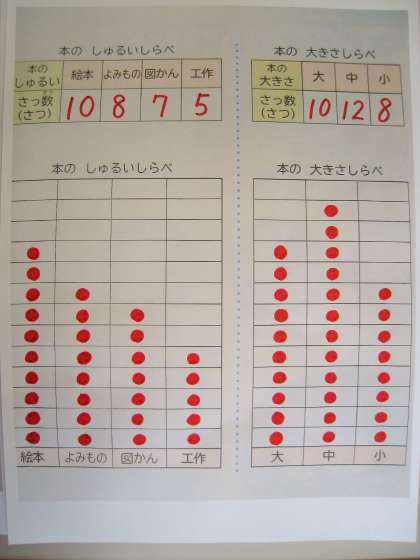 本の しゅるいしらべ
本の しゅるい 絵本 よみもの 図かん 工作
さっ数 (さつ) 10 8 7 5
本の しゅるいしらべ
絵本 よみもの 図かん 工作
本の 大きさしらべ
本の 大きさ 大 中 小
さっ数 (さつ) 10 12 8
本の 大きさしらべ
大 中 小